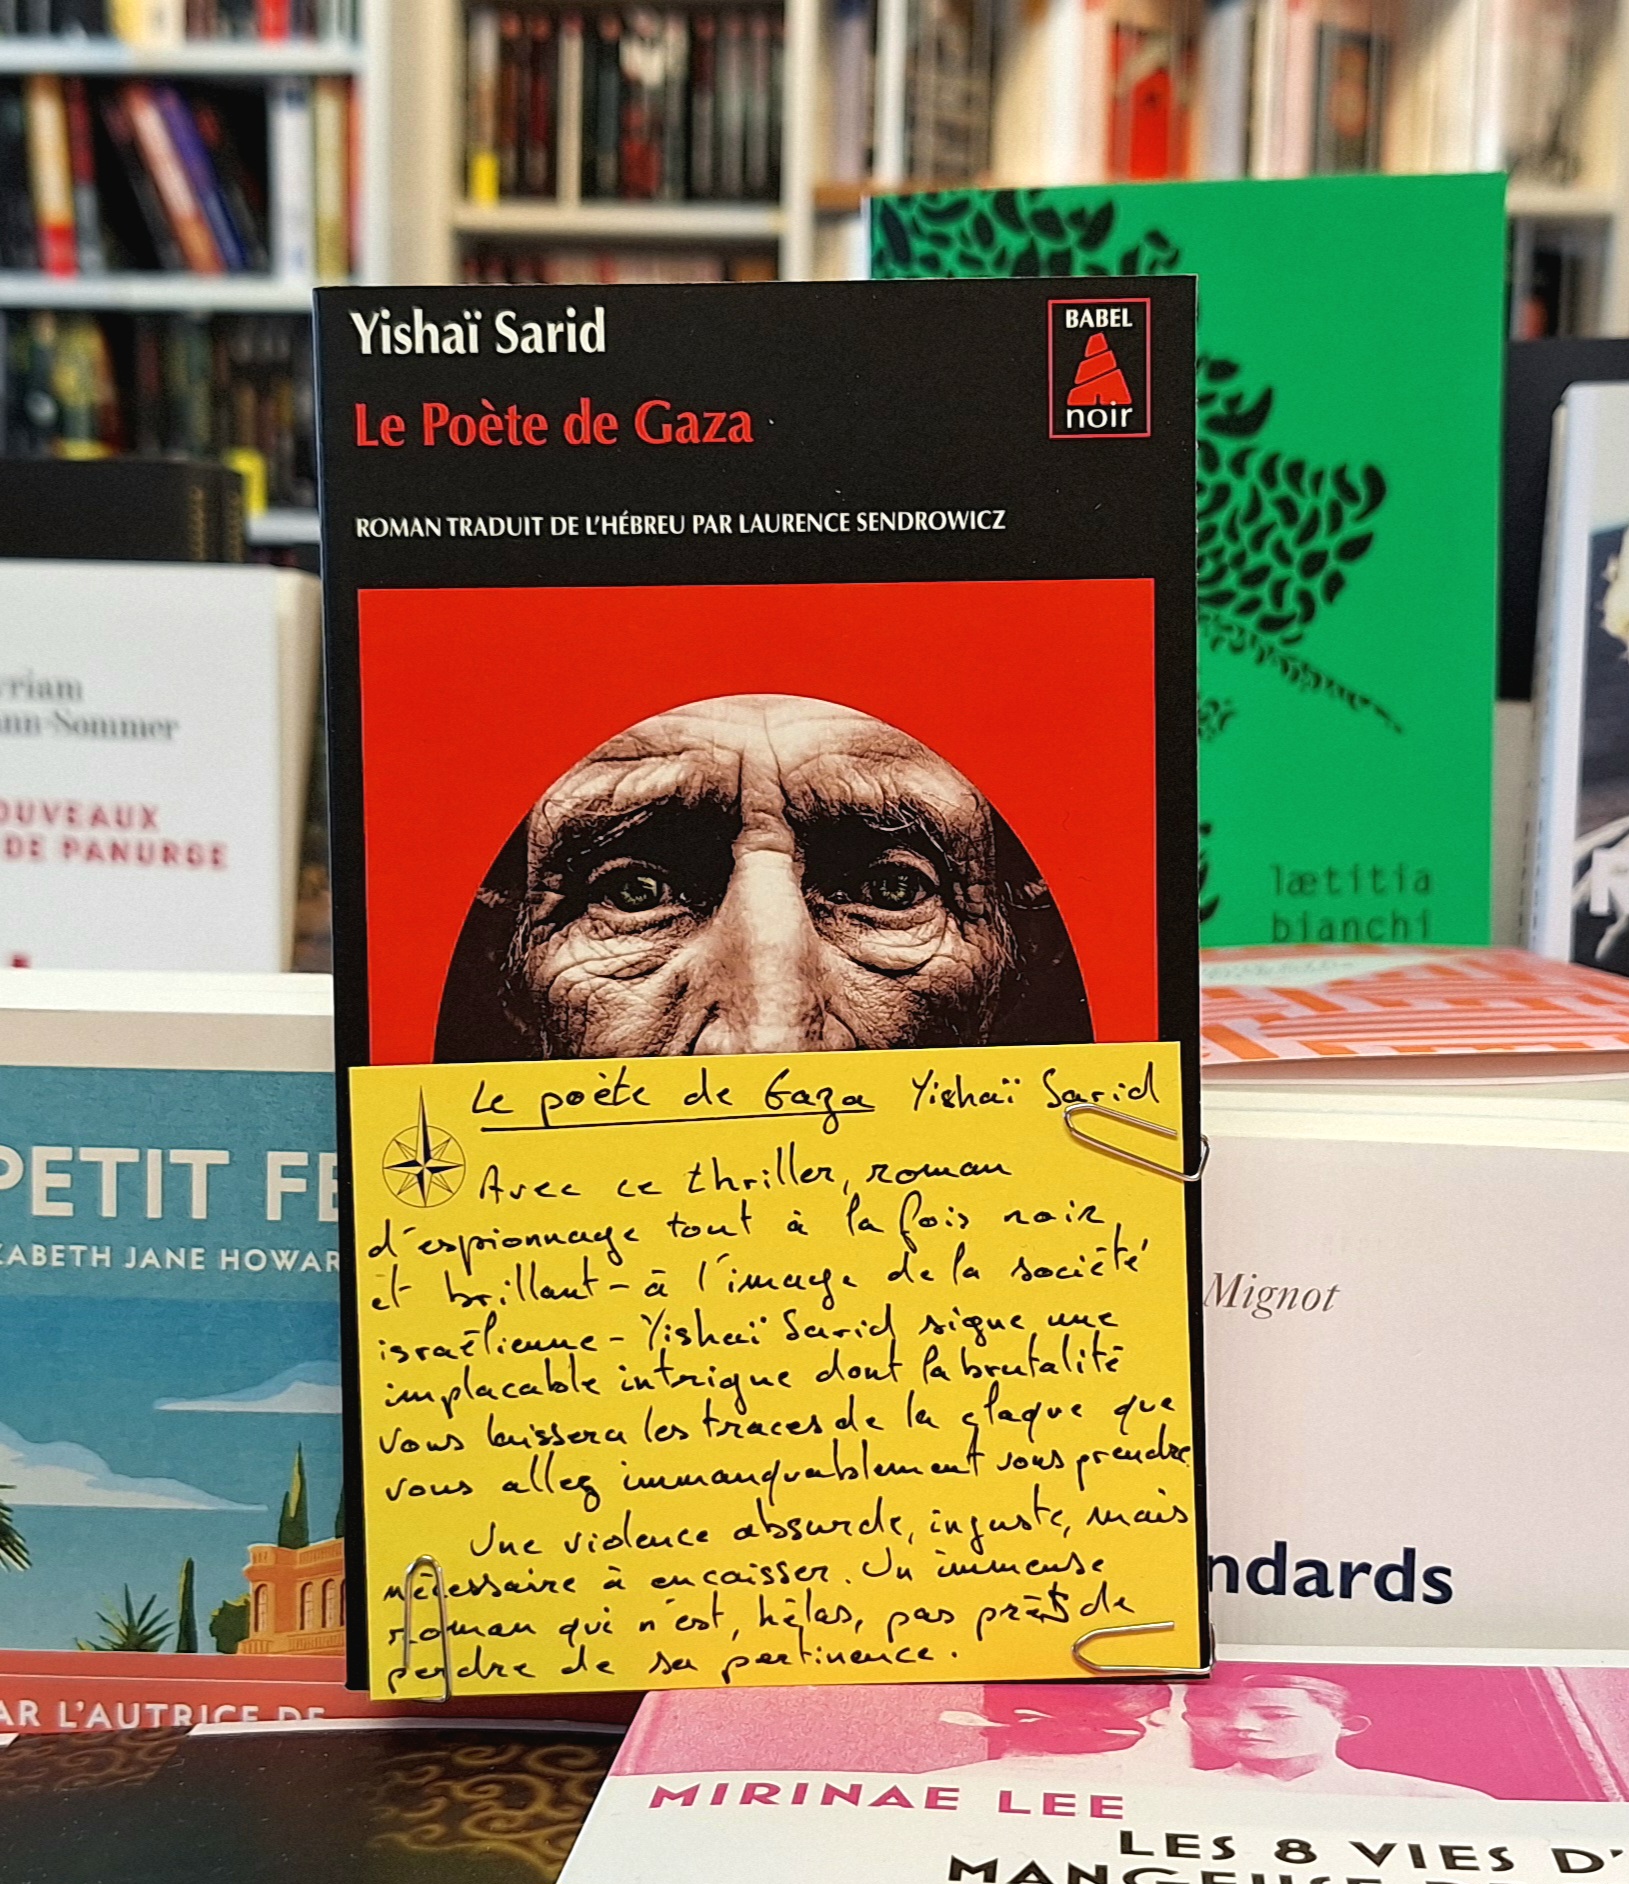 Yishaï Sarid
BABEL
noir
Le Poète de Gaza
ROMAN TRADUIT DE L'HÉBREU PAR LAURENCE SENDROWICZ
Le poète de Gaza Yishaï Sarid
Avec ce thriller, roman
d'espionnage tout à la fois noir,
et brillant - à l'image de la société
israélienne - Yishaï Sarid signe une
implacable intrigue dont la brutalité
vous laissera les traces de la claque que
vous allez immanquablement vous prendre.
Une violence absurde, injuste, mais
nécessaire à encaisser. Un immense
roman qui n'est, hélas, pas prêt de
perdre de sa pertinence.
riam
ann-Sommer
OUVEAUX
DE PANURGE
lætitia
bianchi
PETIT FE
ZABETH JANE HOWAR
AR L'AUTRICE DE
Mignot
ndards
MIRINAE LEE
LES 8 VIES D'
MANGEUSE DE